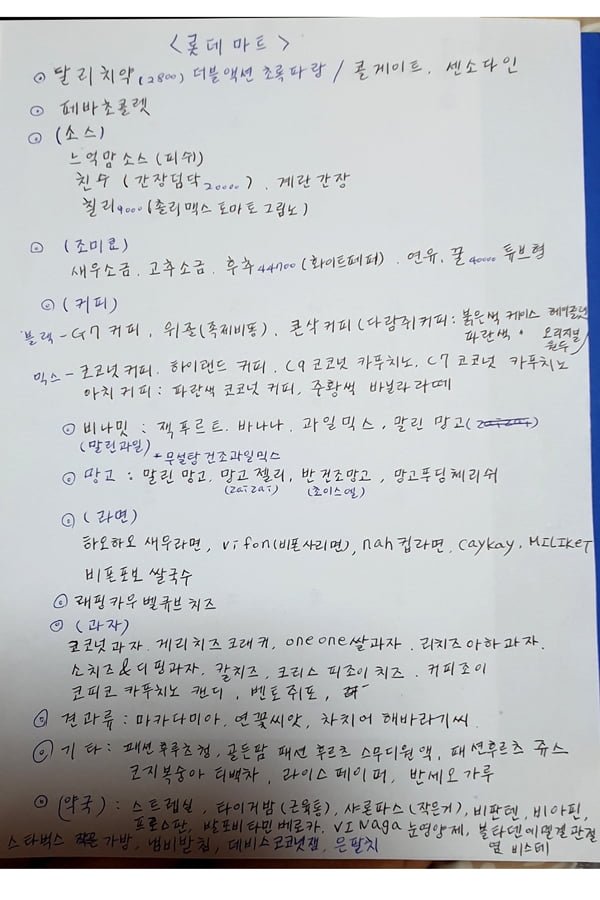 <롯데 마트>
⊙ 달리 치약(2800) 더블액션 초록파랑 / 콜게이트. 센소다인
⊙ 페바초콜렛
⊙ (소스)
느억맘소스(피쉬)
친수 (간장덤닥 20000). 계란간장
칠리 9000(촐리맥스 토마토그림노)
⊙ (조미료)
새우소금. 고추소금. 후추 44700(화이트페퍼). 연유. 꿀 40000 튜브형
⊙ (커피)
블랙 - G7 커피. 위즐(족제비똥). 콘삭커피(다람쥐커피: 붉은색 케이스 헤이즐넛
파란색 " 오리지널 원두)
믹스 - 코코넛커피. 하이랜드 커피. C9 코코넛 카푸치노. C7 코코넛 카푸치노
아치 커피 : 파란색 코코넛 커피, 주황색 바닐라라떼
⊙ 비나밋 : 잭푸르트. 바나나. 과일믹스, 말린 망고
(말린과일) * 무설탕 건조과일믹스
⊙ 망고 : 말린 망고, 망고 젤리, 반건조망고, 망고푸딩체리쉬
(zaizai) (초이스엘)
⊙ (라면)
하오하오 새우라면, vifon(비폰사리면), nah컵라면, caykay, MILIKET
비폰포보 쌀국수
⊙ 래핑카우 벨큐브치즈
⊙ (과자)
코코넛과자. 게리치즈크래커, one one쌀과자. 리치즈아하과자.
소치즈&디핑과자, 칼치즈, 크리스 피조이치즈. 커피조이
코피코 카푸치노 캔디, 벤토쥐포,
⊙ 견과류 : 마카다미아, 연꽃씨앗, 차치어 해바라기씨.
⊙ 기타 : 패션후루츠청, 골든팜 패션 후르츠 스무디원액, 패션후르츠 쥬스
코지복숭아 티백차, 라이스페이퍼, 반세오가루
⊙ (약국) : 스트렙실, 타이거밤(근육통), 샤론파스(작은거), 비판텐, 비아핀,
프로스판, 발포비타민베로카, VINaga 눈영양제, 볼타렌에멀겔관절염 비스테
스타벅스 가방, 냄비받침, 데비스코코넛잼, 은팔찌